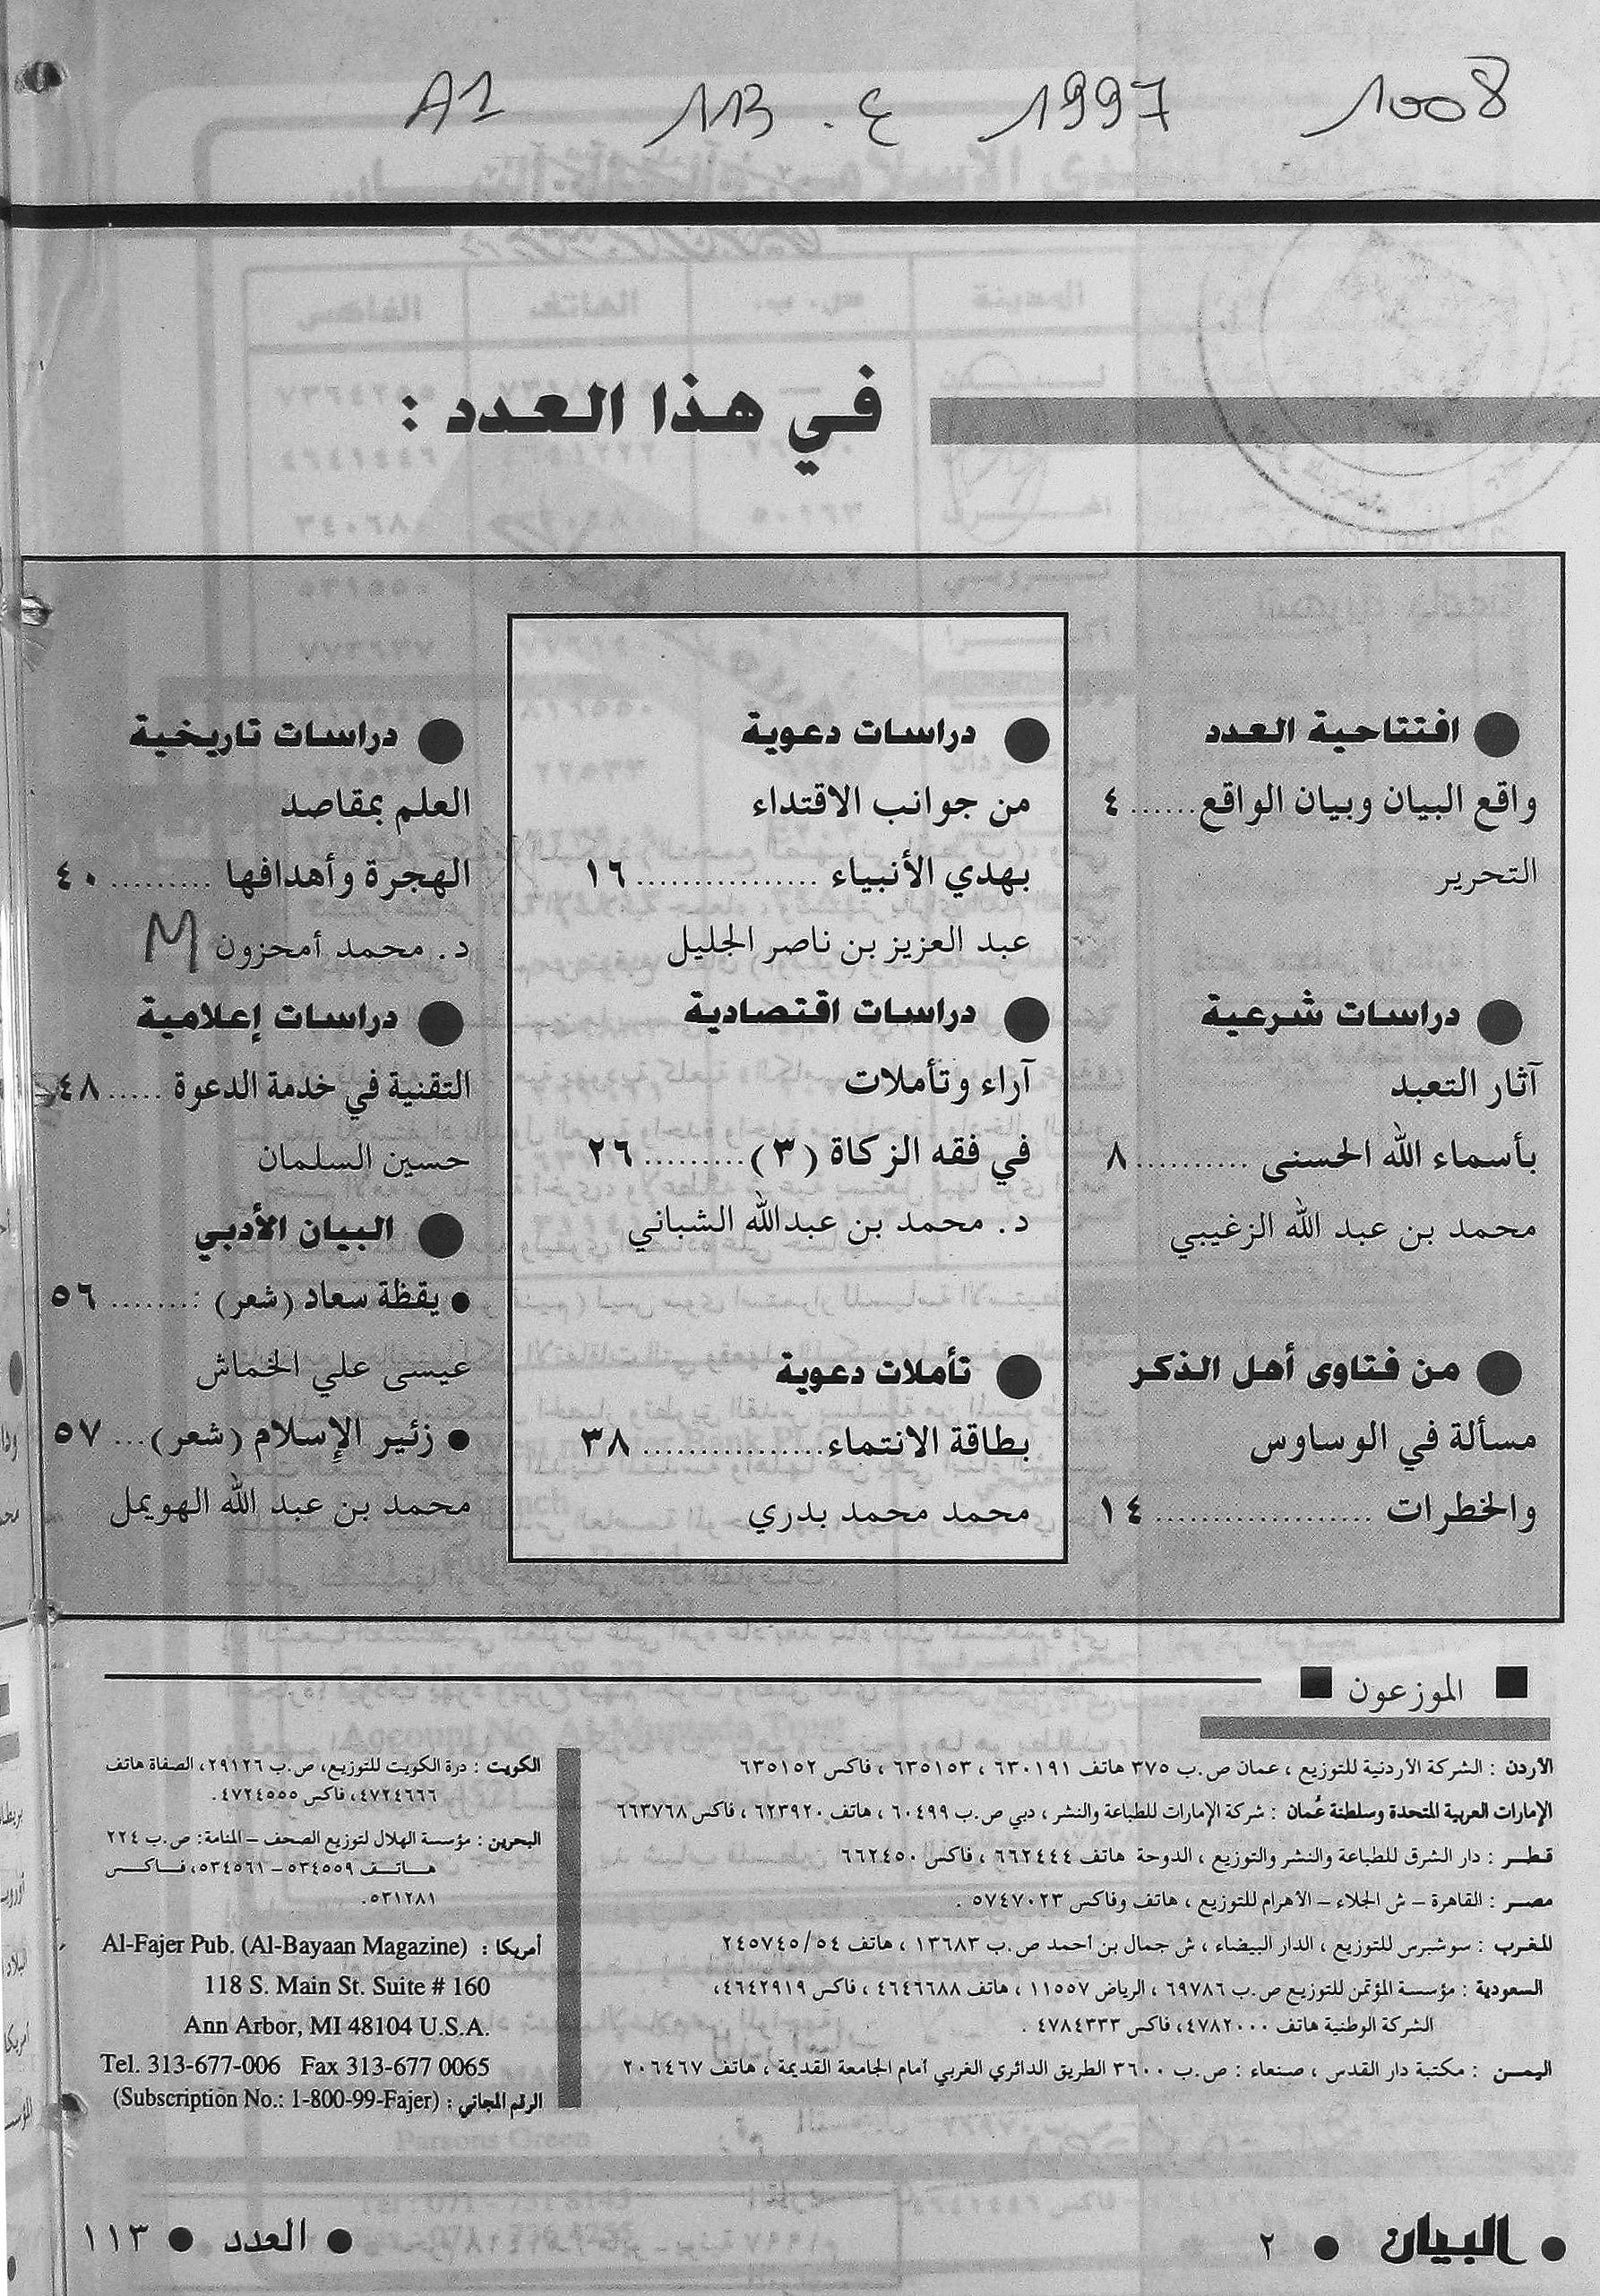 A1 113 . ع 1997 1008
في هذا العدد :
● افتتاحية العدد
واقع البيان وبيان الواقع...... ٤
التحرير
● دراسات شرعية
آثار التعبد
بأسماء الله الحسنى ........... ٨
محمد بن عبد الله الزغيبي
● من فتاوى أهل الذكر
مسألة في الوساوس
والخطرات .................... ١٤
● دراسات دعوية
من جوانب الاقتداء
بهدي الأنبياء ................. ١٦
عبد العزيز بن ناصر الجليل
● دراسات اقتصادية
آراء وتأملات
في فقه الزكاة (٣) .......... ٢٦
د. محمد بن عبدالله الشباني
● تأملات دعوية
بطاقة الانتماء................. ٣٨
محمد محمد بدري
● دراسات تاريخية
العلم بمقاصد
الهجرة وأهدافها ......... ٤٠
د. محمد أمحزون M
● دراسات إعلامية
التقنية في خدمة الدعوة ..... ٤٨
حسين السلمان
● البيان الأدبي
● يقظة سعاد (شعر) ........ ٥٦
عيسى علي الخماش
● زئير الإسلام (شعر)... ٥٧
محمد بن عبد الله الهويمل
■ الموزعون ■
الأردن : الشركة الأردنية للتوزيع ، عمان ص.ب ٣٧٥ هاتف ٦٣٠١٩١ ، ٦٣٥١٥٣ ، فاكس ٦٣٥١٥٢
الإمارات العربية المتحدة وسلطنة عُمان : شركة الإمارات للطباعة والنشر ، دبي ص.ب ٦٠٤٩٩ ، هاتف ٦٢٣٩٢٠ ، فاكس ٦٦٣٧٦٨
قطـر : دار الشرق للطباعة والنشر والتوزيع ، الدوحة هاتف ٦٦٢٤٤٤ ، فاكس ٦٦٢٤٥٠
مصـر : القاهرة – ش الجلاء – الأهرام للتوزيع ، هاتف وفاكس ٥٧٤٧٠٢٣ .
المغرب : سوشبرس للتوزيع ، الدار البيضاء ، ش جمال بن أحمد ص.ب ١٣٦٨٣ ، هاتف ٢٤٥٧٤٥/٥٤
السعودية : مؤسسة المؤتمن للتوزيع ص.ب ٦٩٧٨٦ ، الرياض ١١٥٥٧ ، هاتف ٤٦٤٦٦٨٨ ، فاكس ٤٦٤٢٩١٩،
الشركة الوطنية هاتف ٤٧٨٢٠٠٠، فاكس ٤٧٨٤٣٣٣ .
اليمـن : مكتبة دار القدس ، صنعاء : ص.ب ٣٦٠٠ الطريق الدائري الغربي أمام الجامعة القديمة ، هاتف ٢٠٦٤٦٧
الكويت : درة الكويت للتوزيع، ص.ب ٢٩١٢٦، الصفاة هاتف
٤٧٢٤٦٦٦، فاكس ٤٧٢٤٥٥٥ .
البحرين : مؤسسة الهلال لتوزيع الصحف – المنامة: ص.ب ٢٢٤
هـاتـف ٥٣٤٥٥٩ – ٥٣٤٥٦١، فـاكـس
٥٣١٢٨١.
أمريكا : Al-Fajer Pub. (Al-Bayaan Magazine)
118 S. Main St. Suite # 160
Ann Arbor, MI 48104 U.S.A.
Tel. 313-677-006 Fax 313-677 0065
الرقم المجاني : (Subscription No.: 1-800-99-Fajer)
● البيان ● ٢
● العدد ● ١١٣